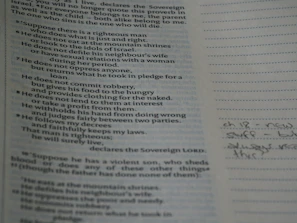 I live, declares the Sovereign
you will no longer quote this proverb in
Israel. For everyone belongs to me, the parent
as well as the child – both alike belong to me.
The one who sins is the one who will die.
Suppose there is a righteous man
who does what is just and right.
He does not eat at the mountain shrines
or look to the idols of Israel.
He does not defile his neighbour's wife
or have sexual relations with a woman
during her period.
He does not oppress anyone,
but returns what he took in pledge for a
loan.
He does not commit robbery,
but gives his food to the hungry
and provides clothing for the naked.
He does not lend to them at interest
or take a profit from them.
He withholds his hand from doing wrong
and judges fairly between two parties.
He follows my decrees
and faithfully keeps my laws.
That man is righteous;
he will surely live,
declares the Sovereign LORD.
Suppose he has a violent son, who sheds
blood or does any of these other things
(though the father has done none of them):
He eats at the mountain shrines.
He defiles his neighbour's wife.
He oppresses the poor and needy.
He commits robbery.
He does not return what he took in
pledge.
ch 18 - new
stuff - but
always